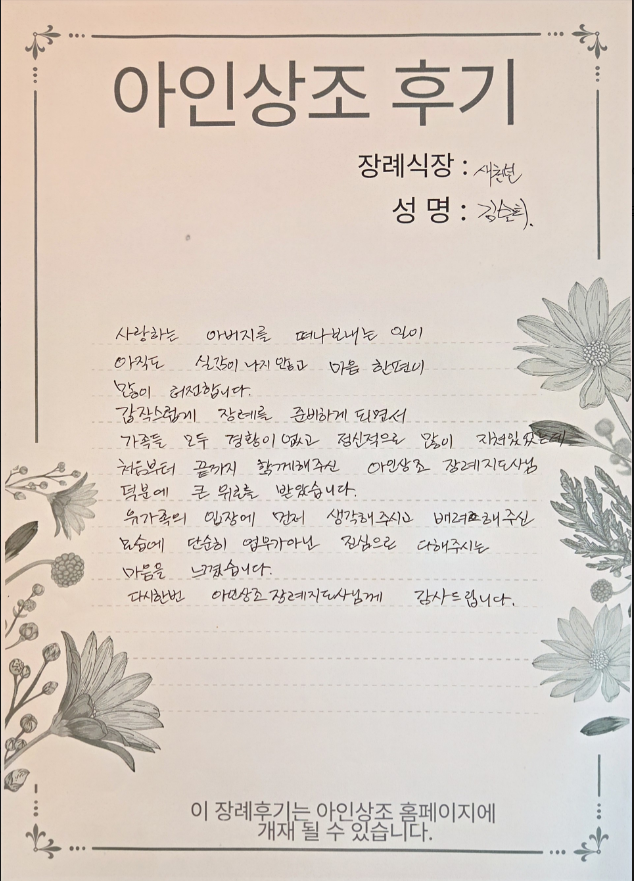 아인상조 후기
장례식장 : 새천년
성 명 :
사랑하는 아버지를 떠나보내는 일이
아직도 실감이 나지 않고 마음 한편이
많이 허전합니다.
갑작스럽게 장례를 준비하게 되면서
가족들 모두 경황이 없고 정신적으로 많이 지쳐있었는데
처음부터 끝까지 함께해주신 아인상조 장례지도사님
덕분에 큰 위로를 받았습니다.
유가족의 입장에 먼저 생각해주시고 배려해주신
모습에 단순히 업무가아닌 진심으로 대해주시는
마음을 느꼈습니다.
다시한번 아인상조 장례지도사님께 감사드립니다.
이 장례후기는 아인상조 홈페이지에
개재 될 수 있습니다.